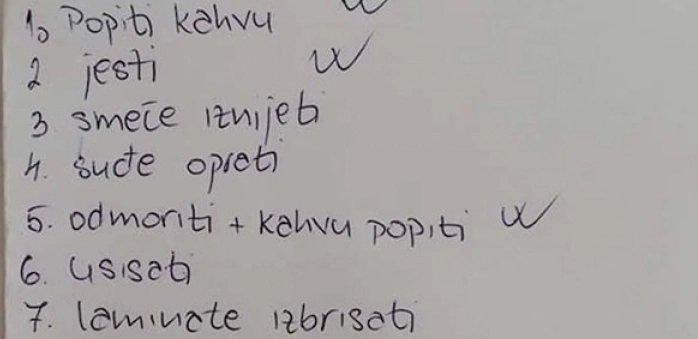 1. Popiti kahvu
2 jesti
3 smeće iznijeti
4. suđe oprati
5. odmoriti + kahvu popiti
6. usisati
7. laminate izbrisati